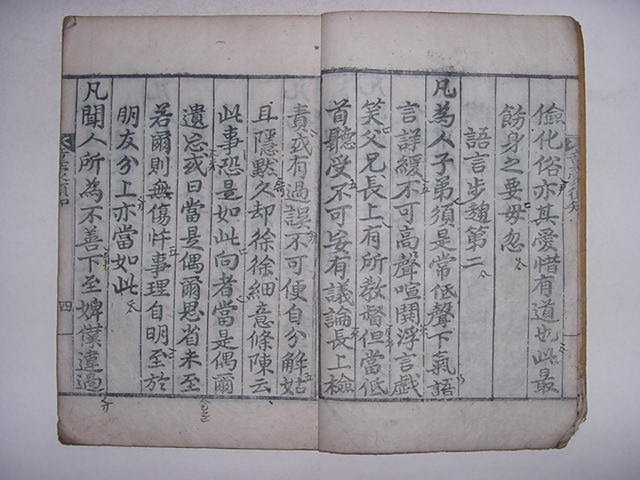 儉化俗亦其愛惜有道也此最
飭身之要毋忽
語言步趨第二
凡為人子弟須是常低聲下氣語
言詳緩不可高聲喧鬧浮言戲
笑父兄長上有所教督但當低
首聽受不可妄有議論長上檢
責或有過誤不可便自分解姑
且隱默久却徐徐細意條陳云
此事恐是如此向者當是偶爾
遺忘或曰當是偶爾思省未至
若爾則無傷忤事理自明至於
朋友分上亦當如此
凡聞人所為不善下至婢僕違過
四